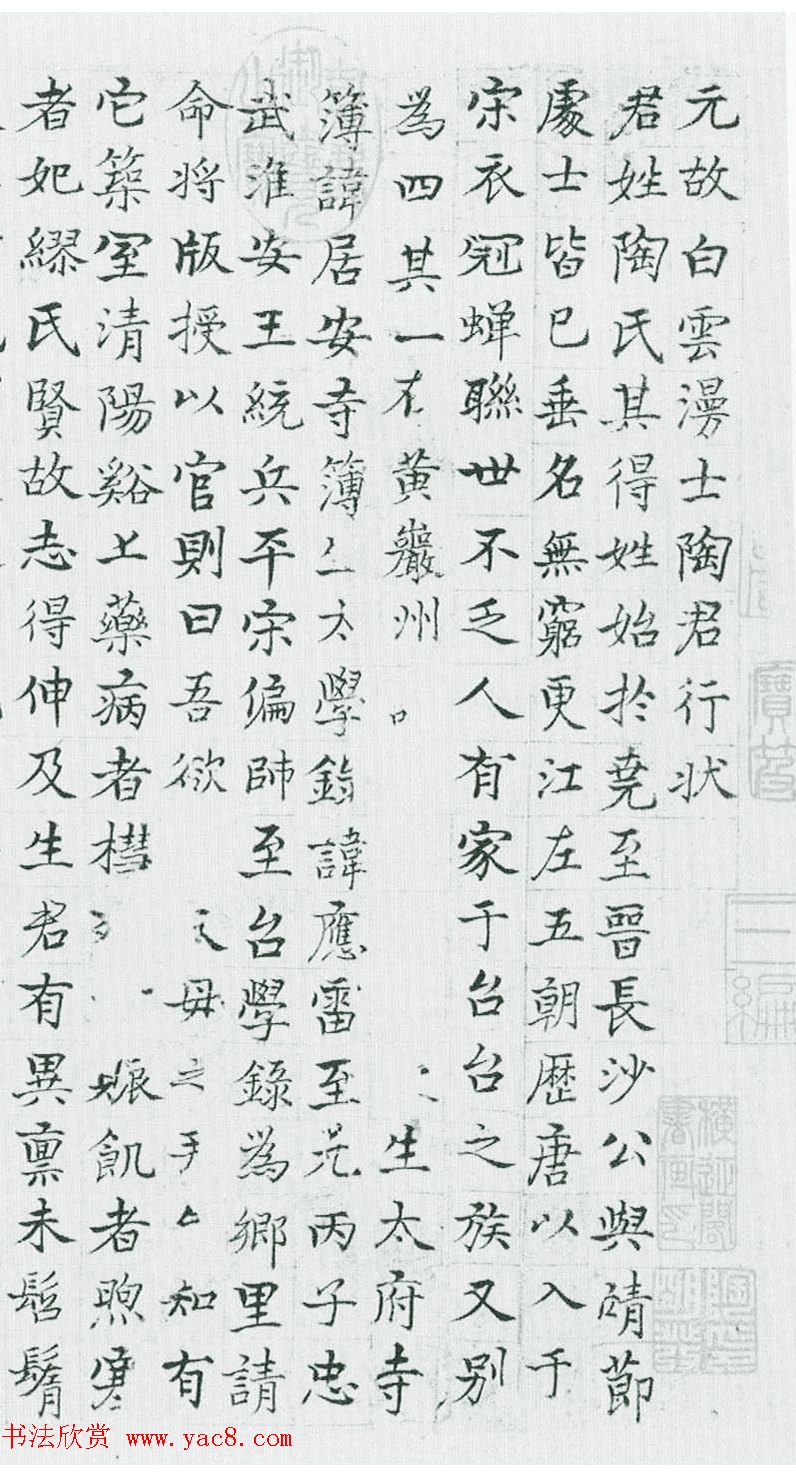 元故白雲漫士陶君行狀
君姓陶氏其得姓始於堯至晉長沙公與靖節
處士皆已垂名無窮更江左五朝歷唐以入于
宋衣冠蟬聯世不乏人有家于台台之族又别
為四其一在黃巖州 生太府寺
簿諱居安寺簿生太學錄諱應雷至元丙子忠
武淮安王統兵平宋偏師至台學錄為鄉里請
命將版授以官則曰吾欲 母之 知有
它築室清陽谿上藥病者槥 賑飢者煦寒
者妃繆氏賢故志得伸及生君有異禀未髫鬌
三編
書法欣赏 www.yac8.com